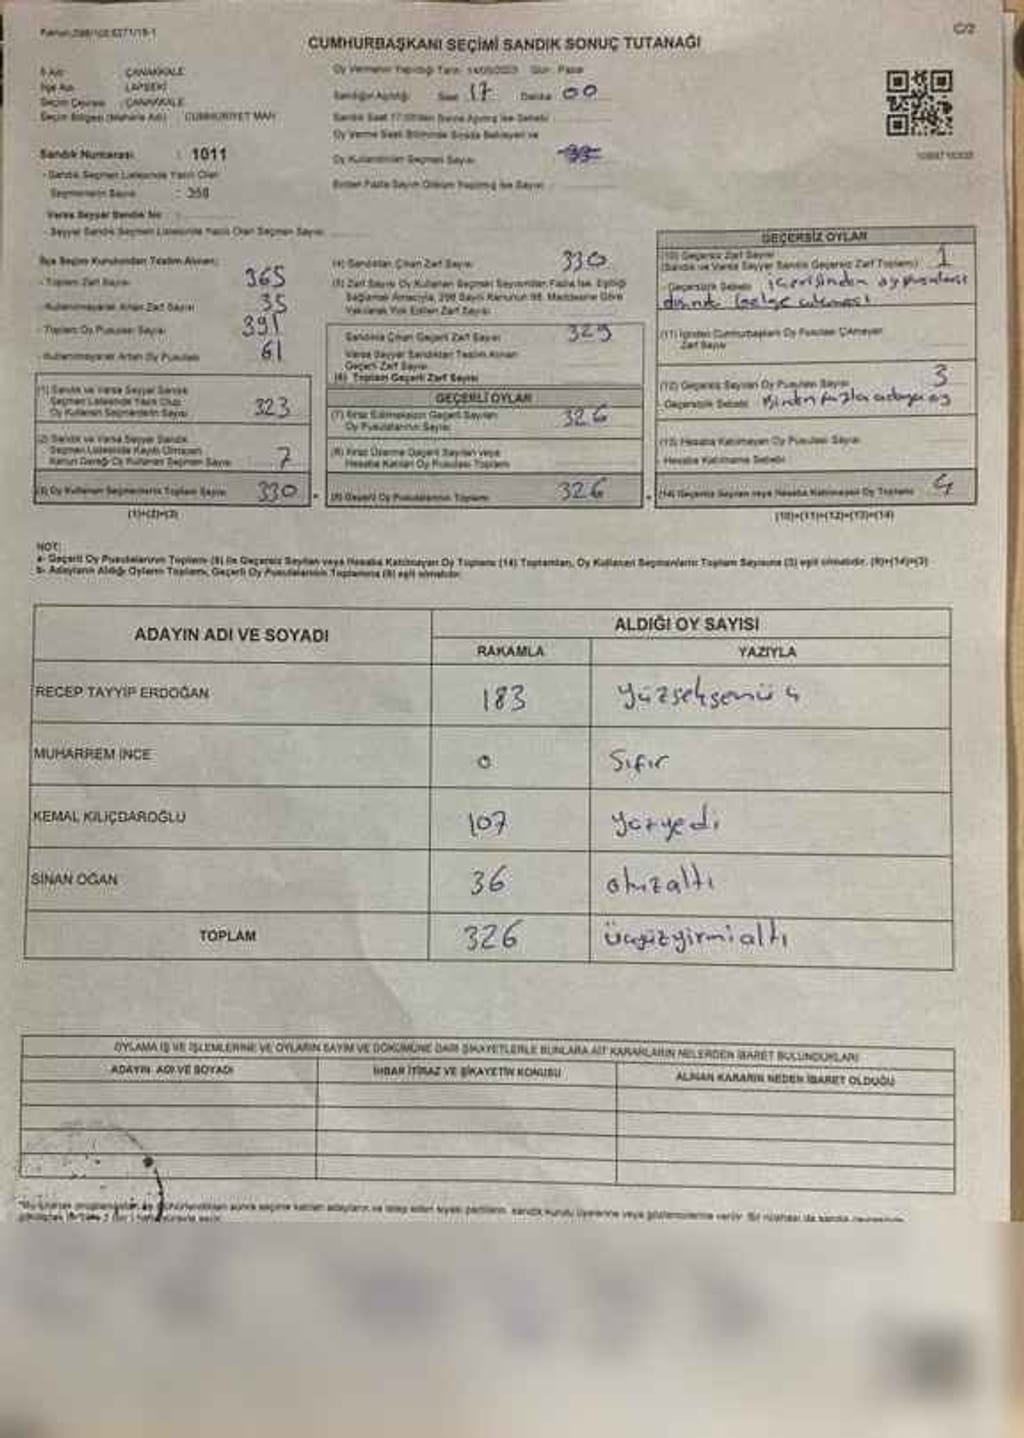 C/2
CUMHURBAŞKANI SEÇİMİ SANDIK SONUÇ TUTANAĞI
İl Adı : ÇANAKKALE
İlçe Adı : LAPSEKİ
Seçim Çevresi : ÇANAKKALE
Seçim Bölgesi (Mahalle Adı) : CUMHURİYET MAH
Sandık Numarası : 1011
- Sandık Seçmen Listesinde Yazılı Olan
Seçmenlerin Sayısı : 358
Varsa Seyyar Sandık No :
- Seyyar Sandık Seçmen Listesinde Yazılı Olan Seçmen Sayısı
Oy Vermenin Yapıldığı Tarih : 14/05/2023 Gün : Pazar
Sandığın Açıldığı Saat 17 Dakika 00
Sandık Saat 17:00'den Sonra Açılmış İse Sebebi
Oy Verme Saati Bitiminde Sırada Bekleyen ve
Oy Kullandırılan Seçmen Sayısı
Birden Fazla Sayım Döküm Yapılmış İse Sayısı
İlçe Seçim Kurulundan Teslim Alınan;
- Toplam Zarf Sayısı 365
- Kullanılmayarak Artan Zarf Sayısı 35
- Toplam Oy Pusulası Sayısı 391
- Kullanılmayarak Artan Oy Pusulası 61
(1) Sandık ve Varsa Seyyar Sandık
Seçmen Listesinde Yazılı Olup
Oy Kullanan Seçmenlerin Sayısı 323
(2) Sandık ve Varsa Seyyar Sandık
Seçmen Listesinde Kayıtlı Olmayan
Kanun Gereği Oy Kullanan Seçmen Sayısı 7
(3) Oy Kullanan Seçmenlerin Toplam Sayısı 330
(1)+(2)=(3)
(4) Sandıktan Çıkan Zarf Sayısı 330
(5) Zarf Sayısı Oy Kullanan Seçmen Sayısından Fazla İse, Eşitliği
Sağlamak Amacıyla, 298 Sayılı Kanunun 98. Maddesine Göre
Yakılarak Yok Edilen Zarf Sayısı
Sandıkta Çıkan Geçerli Zarf Sayısı 329
Varsa Seyyar Sandıktan Teslim Alınan
Geçerli Zarf Sayısı
(6) Toplam Geçerli Zarf Sayısı
GEÇERLİ OYLAR
(7) İtiraz Edilmeksizin Geçerli Sayılan
Oy Pusulalarının Sayısı 326
(8) İtiraz Üzerine Geçerli Sayılan veya
Hesaba Katılan Oy Pusulası Toplamı
(9) Geçerli Oy Pusulalarının Toplamı 326
GEÇERSİZ OYLAR
(10) Geçersiz Zarf Sayısı 1
(Sandık ve Varsa Seyyar Sandık Geçersiz Zarf Toplamı)
- Geçersizlik Sebebi içerisinden oy pusulası
dışında belge çıkması
(11) İçinden Cumhurbaşkanı Oy Pusulası Çıkmayan
Zarf Sayısı
(12) Geçersiz Sayılan Oy Pusulası Sayısı 3
- Geçersizlik Sebebi Birden fazla adaya oy
(13) Hesaba Katılmayan Oy Pusulası Sayısı
- Hesaba Katılmama Sebebi
(14) Geçersiz Sayılan veya Hesaba Katılmayan Oy Toplamı 4
(10)+(11)+(12)+(13)=(14)
NOT:
a- Geçerli Oy Pusulalarının Toplamı (9) ile Geçersiz Sayılan veya Hesaba Katılmayan Oy Toplamı (14) Toplamları, Oy Kullanan Seçmenlerin Toplam Sayısına (3) eşit olmalıdır. (9)+(14)=(3)
b- Adayların Aldığı Oyların Toplamı, Geçerli Oy Pusulalarının Toplamına (9) eşit olmalıdır.
ADAYIN ADI VE SOYADI
ALDIĞI OY SAYISI
RAKAMLA YAZIYLA
RECEP TAYYİP ERDOĞAN 183 Yüzseksenüç
MUHARREM İNCE 0 Sıfır
KEMAL KILIÇDAROĞLU 107 Yüzyedi
SİNAN OĞAN 36 otuzaltı
TOPLAM 326 Üçyüzyirmialtı
OYLAMA İŞ VE İŞLEMLERİNE VE OYLARIN SAYIM VE DÖKÜMÜNE DAİR ŞİKAYETLERLE BUNLARA AİT KARARLARIN NELERDEN İBARET BULUNDUKLARI
ADAYIN ADI VE SOYADI İHBAR İTİRAZ VE ŞİKAYETİN KONUSU ALINAN KARARIN NEDEN İBARET OLDUĞU